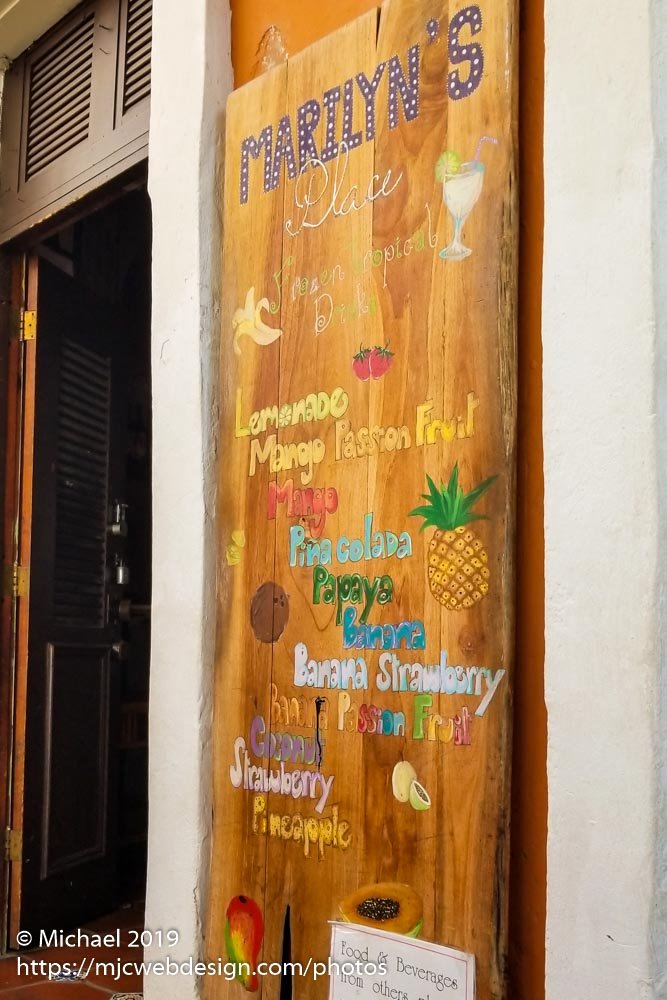 MARILYN'S
Place
Frozen Tropical
Drinks
Lemonade
Mango Passion Fruit
Mango
Piña colada
Papaya
Banana
Banana Strawberry
Banana Passion Fruit
Coconut
Strawberry
Pineapple
Food & Beverages
from others
© Michael 2019
https://mjcwebdesign.com/photos